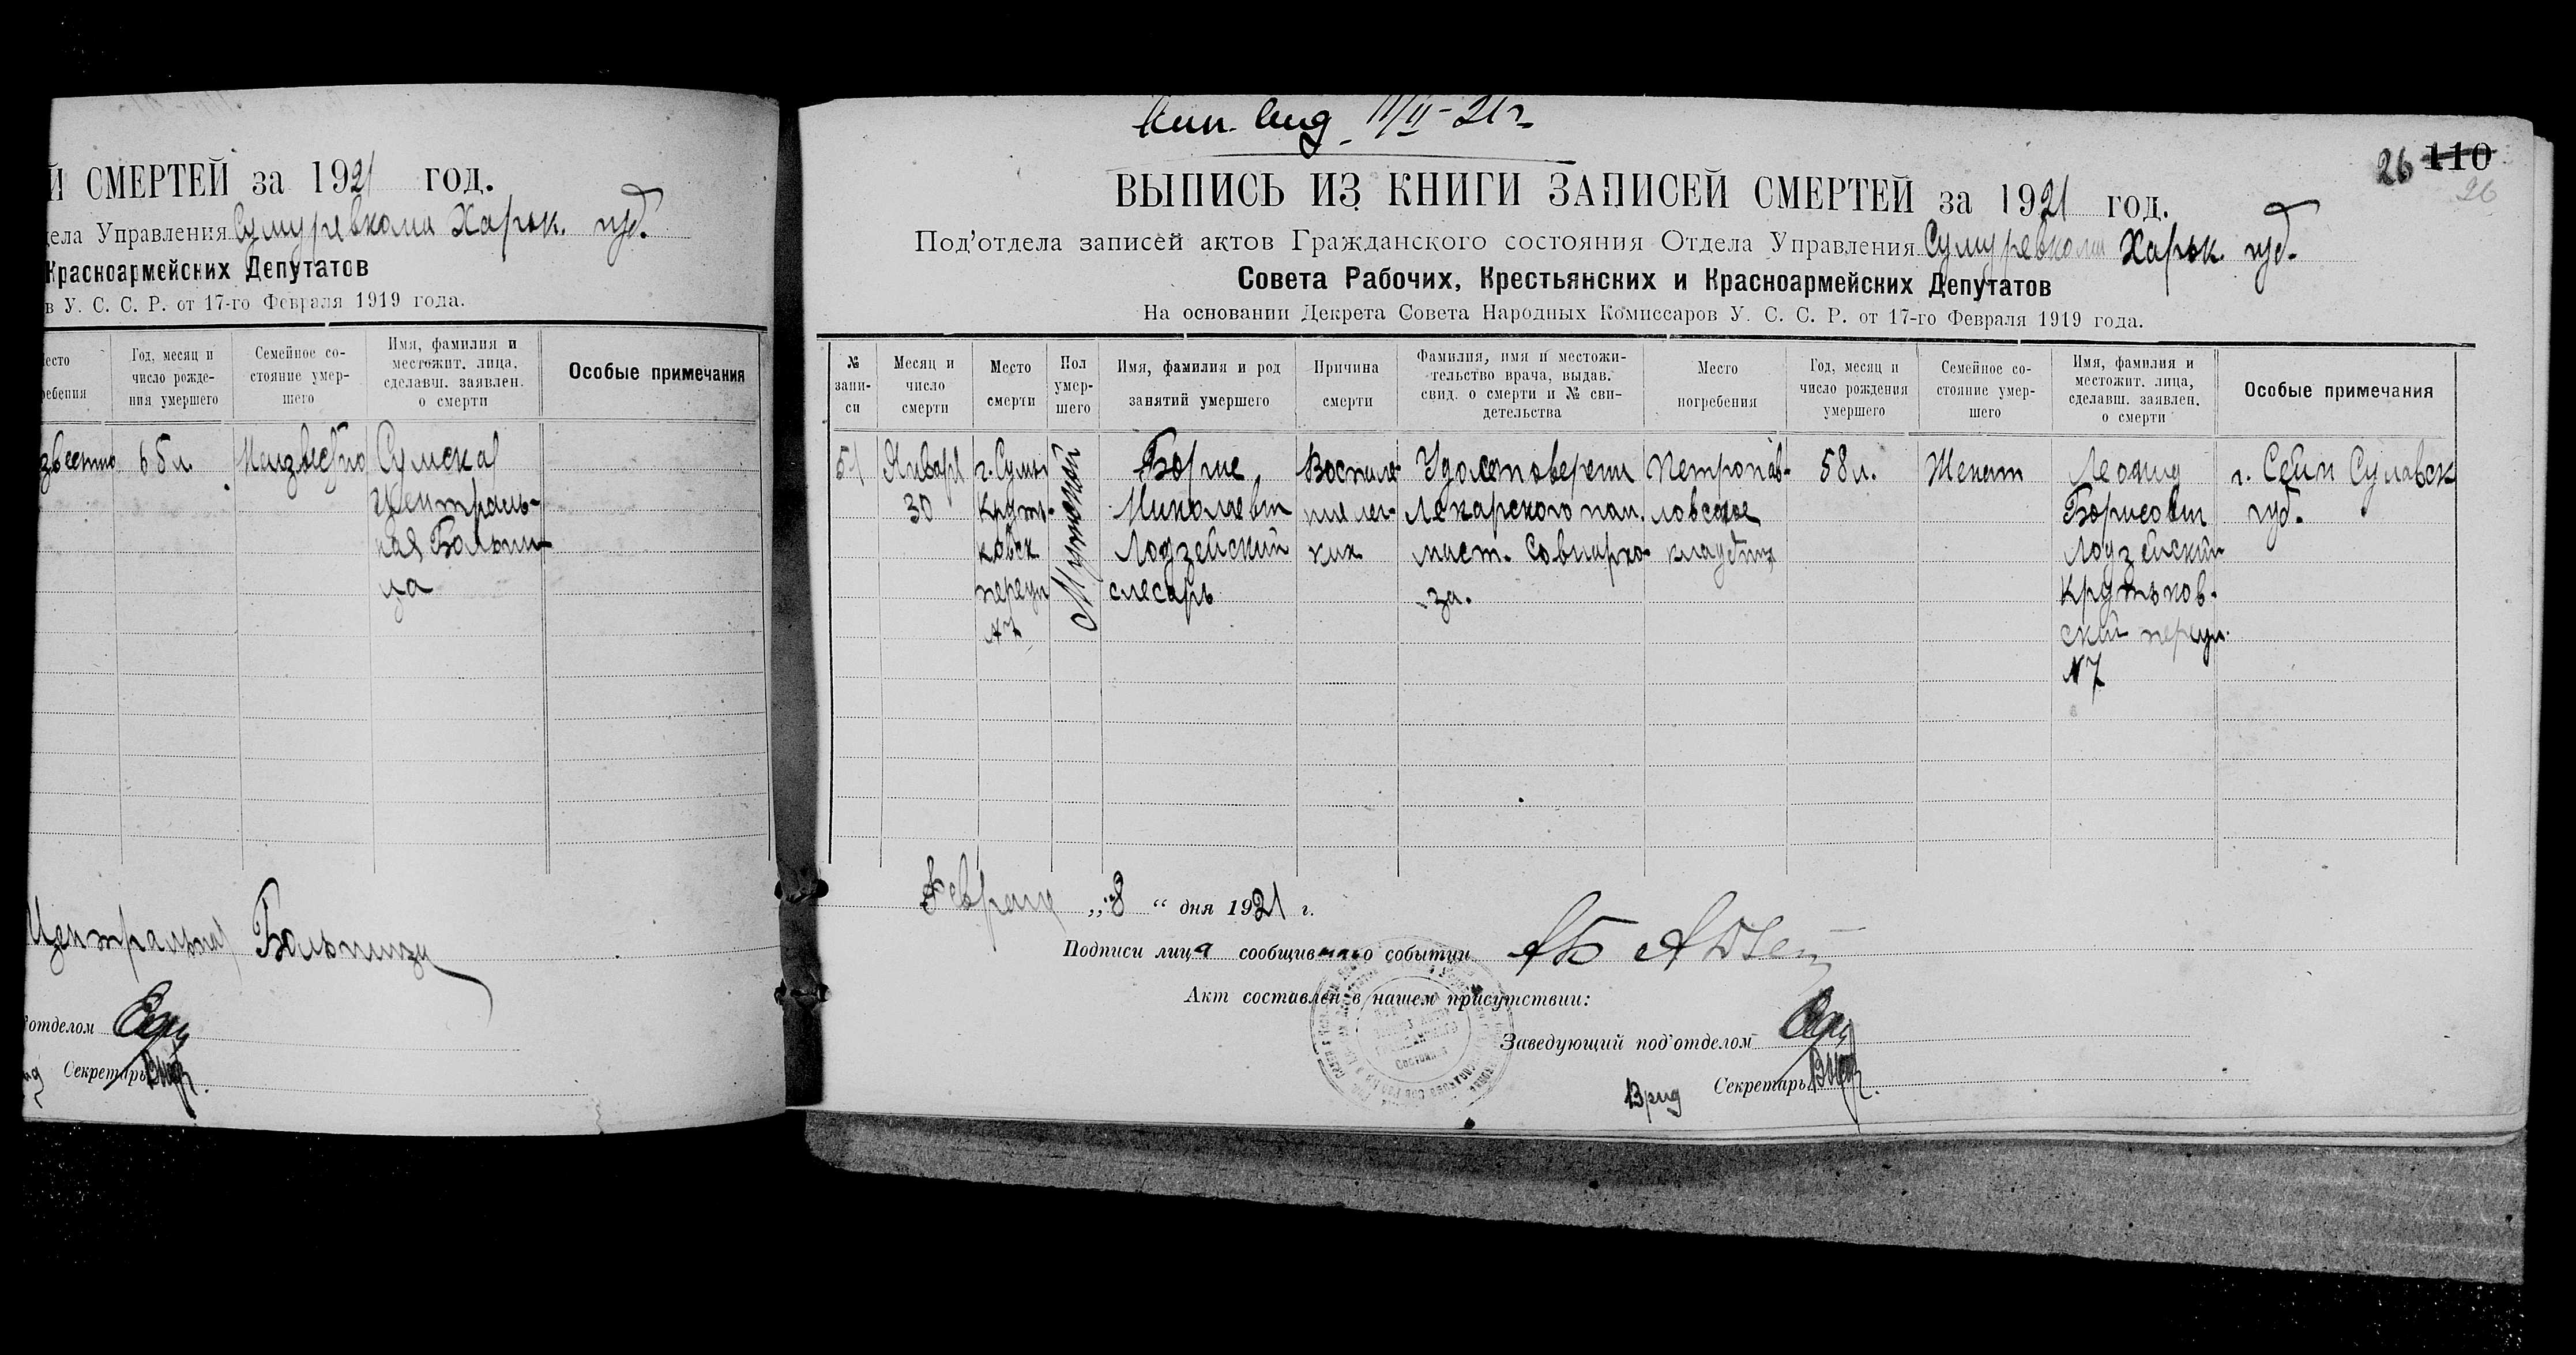 Й СМЕРТЕЙ за 1921 год.
дела Управления Сумуревкома Харьк. губ.
Красноармейских Депутатов
в У. С. С. Р. от 17-го Февраля 1919 года.
есто
ребения
Год, месяц и
число рожде-
ния умершего
Семейное со-
стояние умер-
шего
Имя, фамилия и
местожит. лица,
сделавш. заявлен.
о смерти
Особые примечания
звестно
65 л.
Неизвестно
Сумская
Централь-
ная Больни-
ца
Центральная Больница
отделом
Секретарь
110
26
26
ВЫПИСЬ ИЗ КНИГИ ЗАПИСЕЙ СМЕРТЕЙ за 1921 год.
Под'отдела записей актов Гражданского состояния Отдела Управления Сумуревкома Харьк. губ.
Совета Рабочих, Крестьянских и Красноармейских Депутатов
На основании Декрета Совета Народных Комиссаров У. С. С. Р. от 17-го Февраля 1919 года.
№
запи-
си
Месяц и
число
смерти
Место
смерти
Пол
умер-
шего
Имя, фамилия и род
занятий умершего
Причина
смерти
Фамилия, имя и местожи-
тельство врача, выдав.
свид. о смерти и № сви-
детельства
Место
погребения
Год, месяц и
число рождения
умершего
Семейное со-
стояние умер-
шего
Имя, фамилия и
местожит. лица,
сделавш. заявлен.
о смерти
Особые примечания
51
Января
30
г. Сумы
Круть-
ковск
переул
№ 7
Мужской
Борис
Николаевич
Лодзейский
слесарь
Воспале-
ние лег-
ких
Удостоверени
Лекарского пом.
маст. Совнархо-
за.
Петропав-
ловское
кладбище
58 л.
Женат
Леонид
Борисович
Лодзейский
Крутьков-
ский переул.
№ 7
г. Сейн Сувалск
губ.
Февраля „8“ дня 1921 г.
Подписи лица сообщившаго о событии
Акт составлен в нашем присутствии:
Заведующий под'отделом
Врид Секретарь